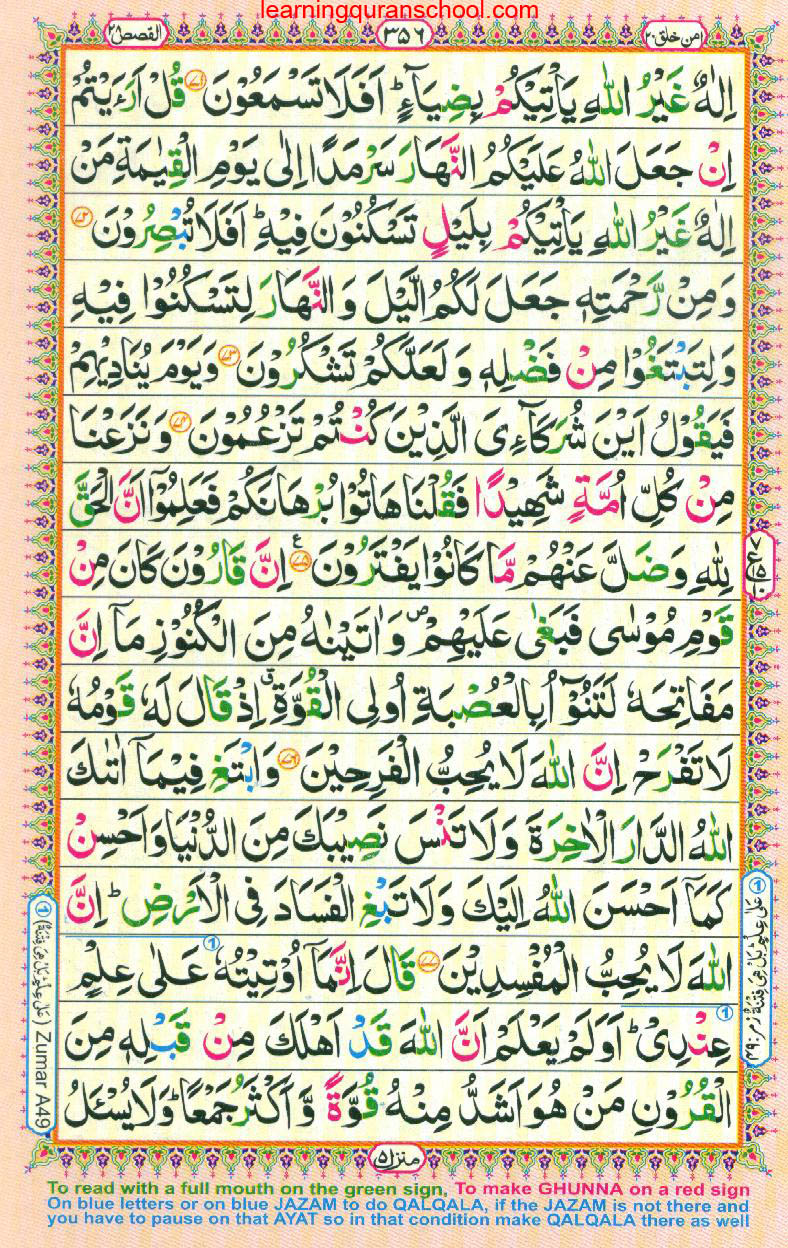 learningquranschool.com
امن خلق ٢٠
٣٥٦
القصص ٢٨
اِلٰهٌ غَيْرُ اللّٰهِ يَاْتِيْكُمْ بِضِيَآءٍ ؕ اَفَلَا تَسْمَعُوْنَ ﴿٧١﴾ قُلْ اَرَءَيْتُمْ
اِنْ جَعَلَ اللّٰهُ عَلَيْكُمُ النَّهَارَ سَرْمَدًا اِلٰى يَوْمِ الْقِيٰمَةِ مَنْ
اِلٰهٌ غَيْرُ اللّٰهِ يَاْتِيْكُمْ بِلَيْلٍ تَسْكُنُوْنَ فِيْهِ ؕ اَفَلَا تُبْصِرُوْنَ ﴿٧٢﴾
وَمِنْ رَّحْمَتِهٖ جَعَلَ لَكُمُ الَّيْلَ وَالنَّهَارَ لِتَسْكُنُوْا فِيْهِ
وَلِتَبْتَغُوْا مِنْ فَضْلِهٖ وَلَعَلَّكُمْ تَشْكُرُوْنَ ﴿٧٣﴾ وَيَوْمَ يُنَادِيْهِمْ
فَيَقُوْلُ اَيْنَ شُرَكَآءِىَ الَّذِيْنَ كُنْتُمْ تَزْعُمُوْنَ ﴿٧٤﴾ وَنَزَعْنَا
مِنْ كُلِّ اُمَّةٍ شَهِيْدًا فَقُلْنَا هَاتُوْا بُرْهَانَكُمْ فَعَلِمُوْٓا اَنَّ الْحَقَّ
لِلّٰهِ وَضَلَّ عَنْهُمْ مَّا كَانُوْا يَفْتَرُوْنَ ﴿٧٥﴾ ع اِنَّ قَارُوْنَ كَانَ مِنْ
قَوْمِ مُوْسٰى فَبَغٰى عَلَيْهِمْ ۖ وَاٰتَيْنٰهُ مِنَ الْكُنُوْزِ مَآ اِنَّ
مَفَاتِحَهٗ لَتَنُوْٓاُ بِالْعُصْبَةِ اُولِى الْقُوَّةِ ۗ اِذْ قَالَ لَهٗ قَوْمُهٗ
لَا تَفْرَحْ اِنَّ اللّٰهَ لَا يُحِبُّ الْفَرِحِيْنَ ﴿٧٦﴾ وَابْتَغِ فِيْمَآ اٰتٰىكَ
اللّٰهُ الدَّارَ الْاٰخِرَةَ وَلَا تَنْسَ نَصِيْبَكَ مِنَ الدُّنْيَا وَاَحْسِنْ
كَمَآ اَحْسَنَ اللّٰهُ اِلَيْكَ وَلَا تَبْغِ الْفَسَادَ فِى الْاَرْضِ ؕ اِنَّ
اللّٰهَ لَا يُحِبُّ الْمُفْسِدِيْنَ ﴿٧٧﴾ قَالَ اِنَّمَآ اُوْتِيْتُهٗ ① عَلٰى عِلْمٍ
عِنْدِىْ ① ؕ اَوَلَمْ يَعْلَمْ اَنَّ اللّٰهَ قَدْ اَهْلَكَ مِنْ قَبْلِهٖ مِنَ
الْقُرُوْنِ مَنْ هُوَ اَشَدُّ مِنْهُ قُوَّةً وَّاَكْثَرُ جَمْعًا ؕ وَلَا يُسْئَلُ
① عَلٰى عِلْمٍ ؕ بَلْ هِىَ فِتْنَةٌ زمر : ٤٩
① (عَلٰى عِلْمٍ بَلْ هِىَ فِتْنَةٌ) Zumar A49
منزل ٥
To read with a full mouth on the green sign, To make GHUNNA on a red sign
On blue letters or on blue JAZAM to do QALQALA, if the JAZAM is not there and
you have to pause on that AYAT so in that condition make QALQALA there as well